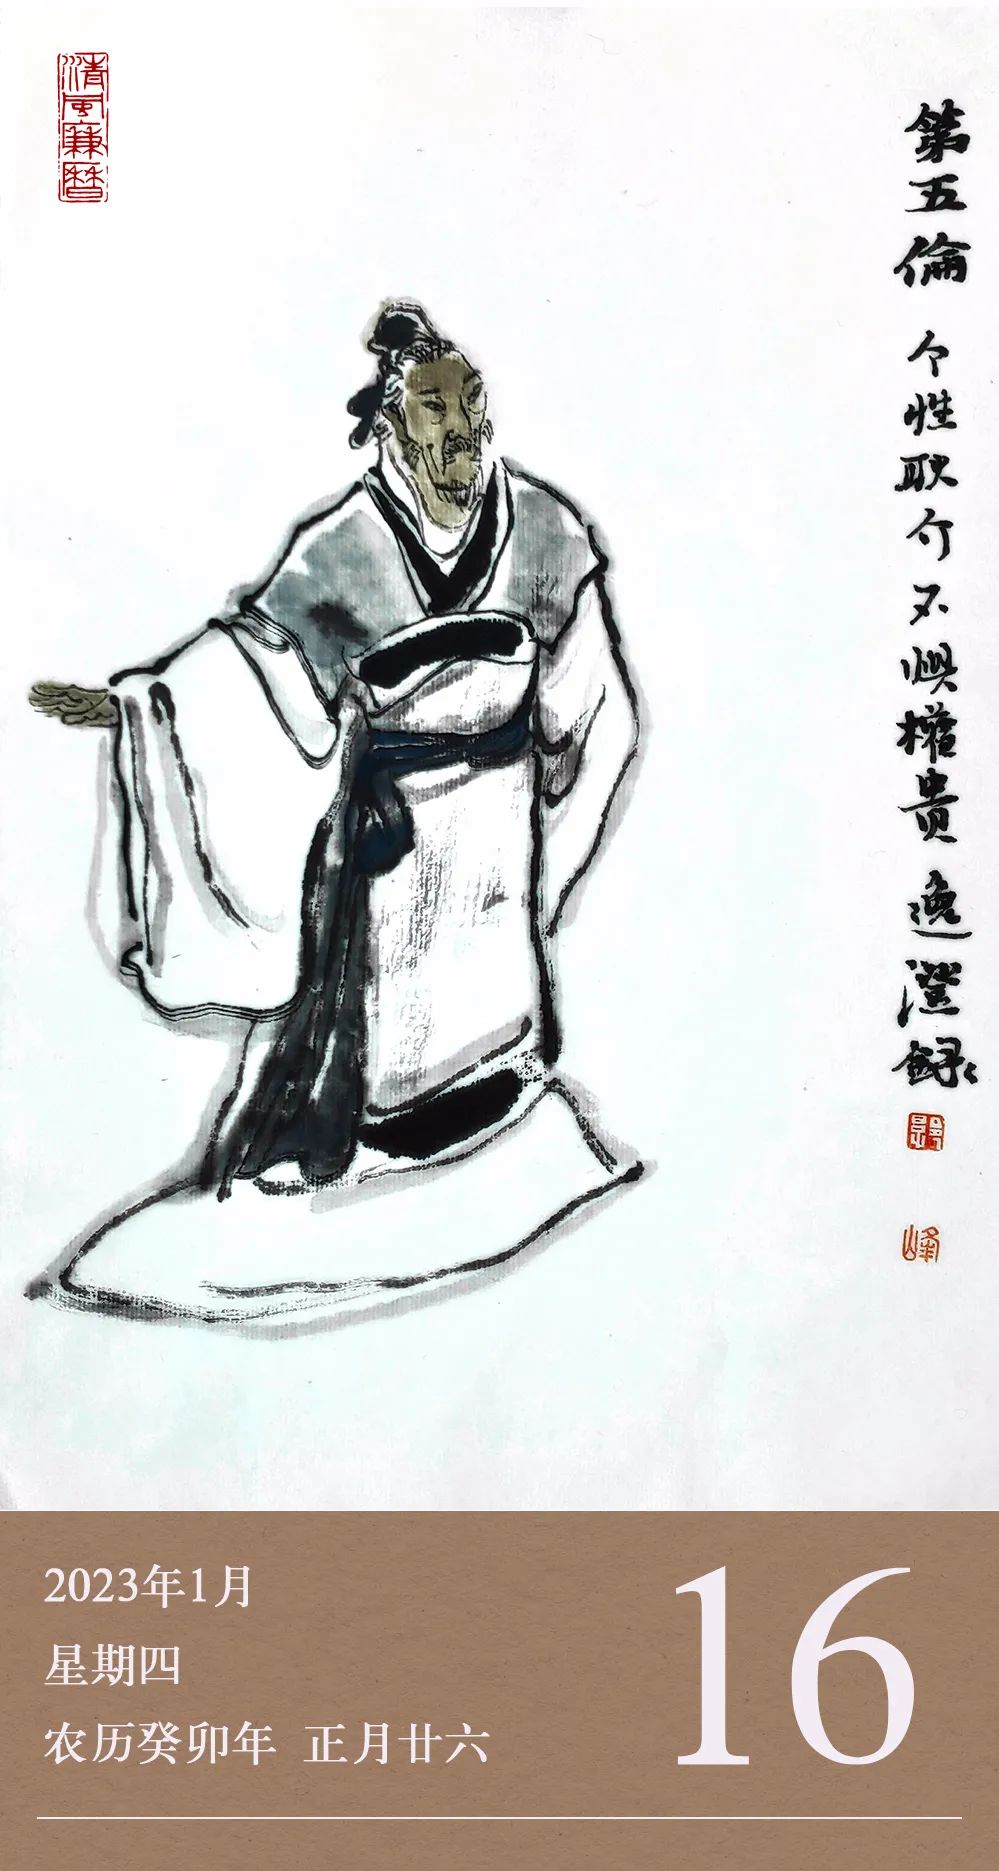 清風廉曆
第五倫 个性耿介不惧權貴 逸澄録
峰
2023年1月
星期四
农历癸卯年 正月廿六
16